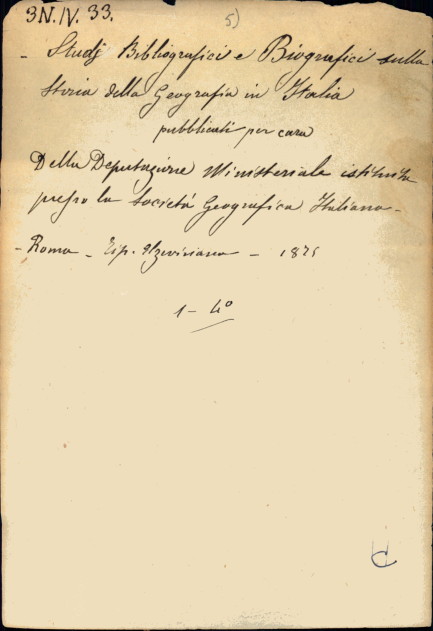 3N.IV.33.
5)
- Studj Bibliografici e Biografici sulla
Storia della Geografia in Italia
pubblicati per cura
Della Deputazione Ministeriale istituita
presso la Società Geografica Italiana -
- Roma - Tip. Elzeviriana - 1875
1 - 4º